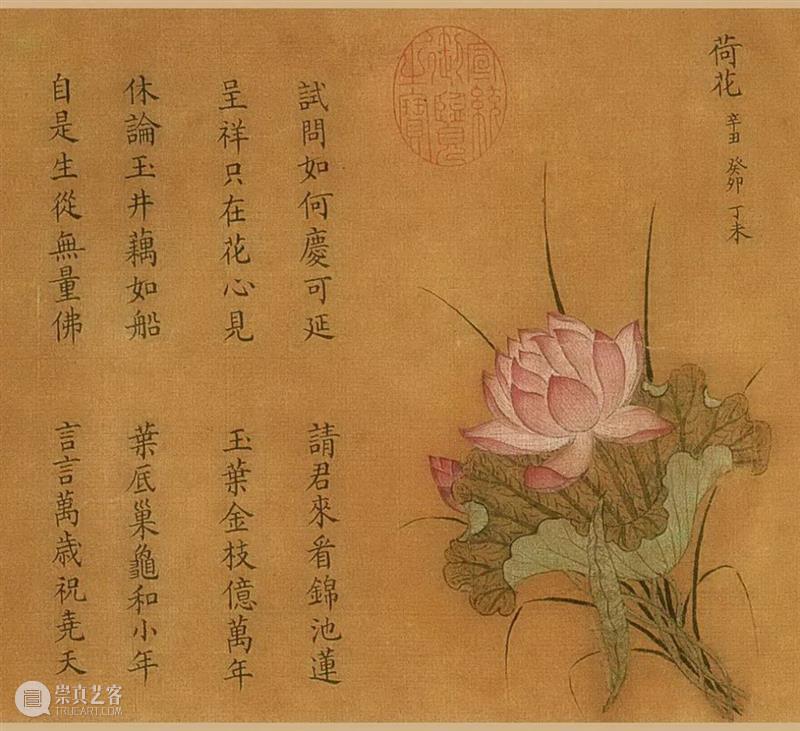 荷花 辛丑 癸卯 丁未
宣統御覽之寶
試問如何慶可延 請君來看錦池蓮
呈祥只在花心見 玉葉金枝億萬年
休論玉井藕如船 葉底巢龜和小年
自是生從無量佛 言言萬歳祝堯天
崇真艺客
TRUEART.COM